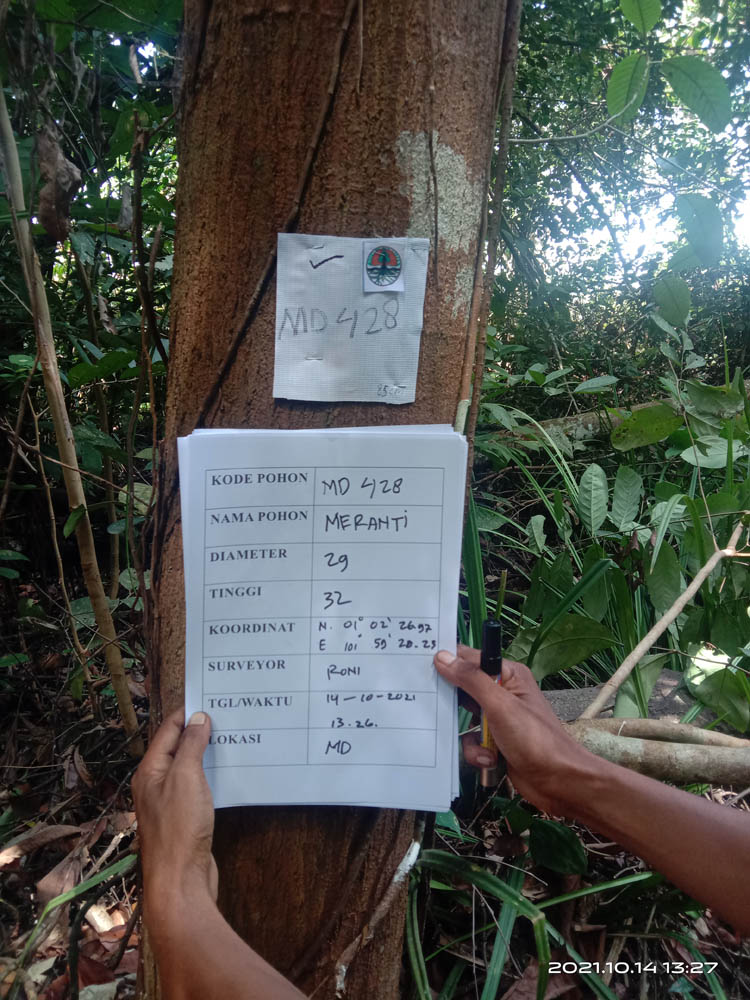 MD 428
85cm
KODE POHON MD 428
NAMA POHON MERANTI
DIAMETER 29
TINGGI 32
KOORDINAT N. 01° 02' 26.97
E 101° 59' 20.29
SURVEYOR RONI
TGL/WAKTU 14-10-2021
13.26.
LOKASI MD
2021.10.14 13:27